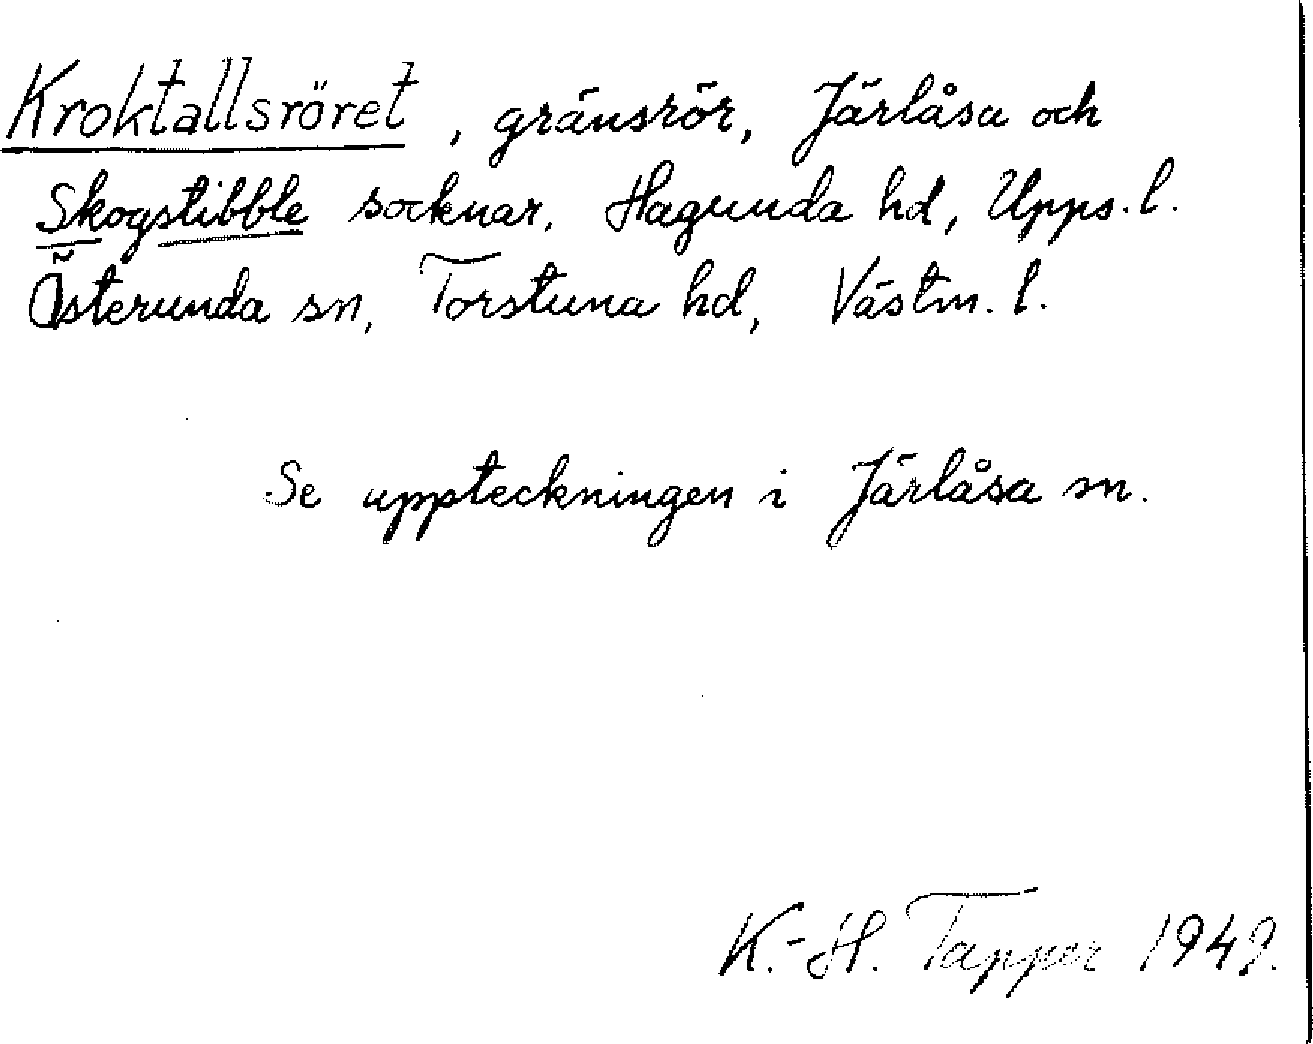 Kroktallsröret, gränsrör, Järlåsa och
Skogstibble socknar, Hagunda hd, Upps. l.
Österunda sn, Torstuna hd, Västm. l.
Se uppteckningen i Järlåsa sn.
K.-H. Tapper 1949.